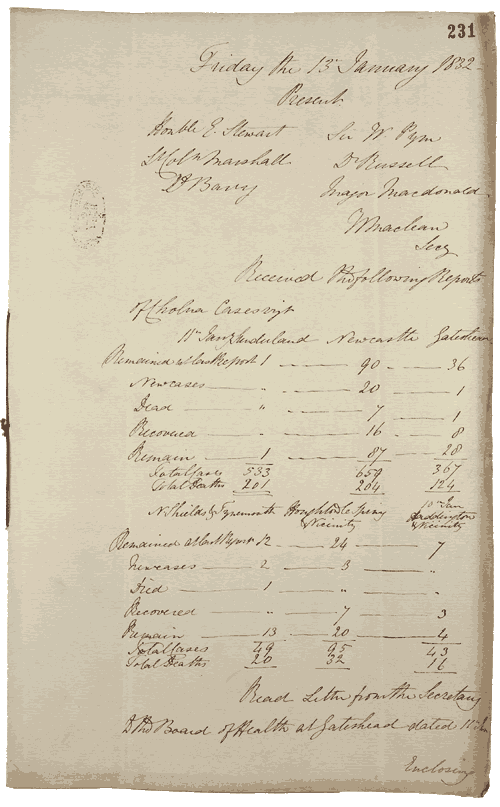 231
Friday the 13th January 1832
Present
Honble E. Stewart Sir W Pym
Lt Coln Marshall Dr Russell
Dr Barry Major Macdonald
W Maclean
Secy
Received the following Reports
of Cholera Cases vizt
11th Jany Sunderland Newcastle Gateshead
Remained at last Report 1 90 36
New cases " 20 1
Dead " 7 1
Recovered " 16 8
Remain 1 87 28
Total Cases 533 657 367
Total Deaths 201 204 124
N. Shields & Tynemouth Houghton Le Spring & Vicinity 10th Jan Haddington & Vicinity
Remained at last Report 12 24 7
New cases 2 3 "
Died 1 " "
Recovered " 7 3
Remain 13 20 4
Total Cases 49 95 43
Total Deaths 20 32 16
Read Letter from the Secretary
of the Board of Health at Gateshead dated 11th Jan
Enclosing